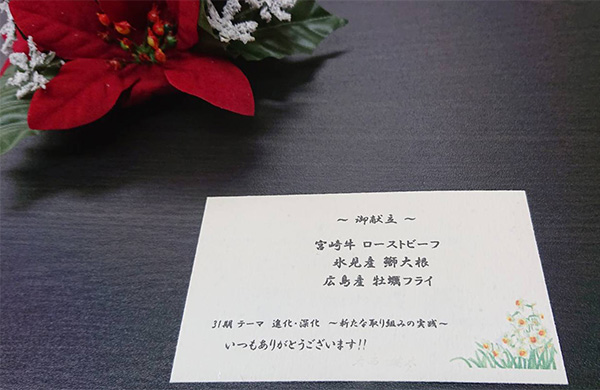 ～ 御献立 ～
宮崎牛 ローストビーフ
氷見産 鰤大根
広島産 牡蠣フライ
31期 テーマ 進化・深化 ～新たな取り組みの実践～
いつもありがとうございます!!